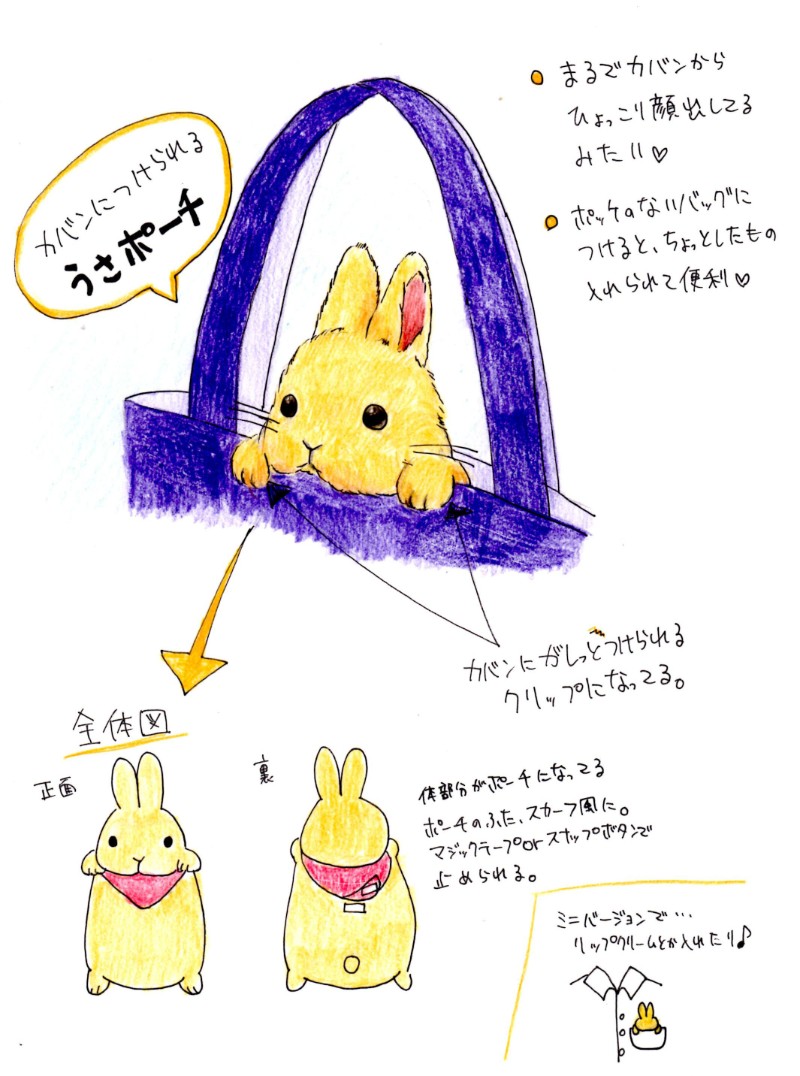 カバンにつけられる
うさポーチ
まるでカバンから
ひょっこり顔出してる
みたい♡
ポッケのないバッグに
つけると、ちょっとしたもの
入れられて便利♡
カバンにがしっとつけられる
クリップになってる。
全体図
正面
裏
体部分がポーチになってる
ポーチのふた、スカーフ風に。
マジックテープorスナップボタンで
止められる。
ミニバージョンで…
リップクリームとか入れたり♪